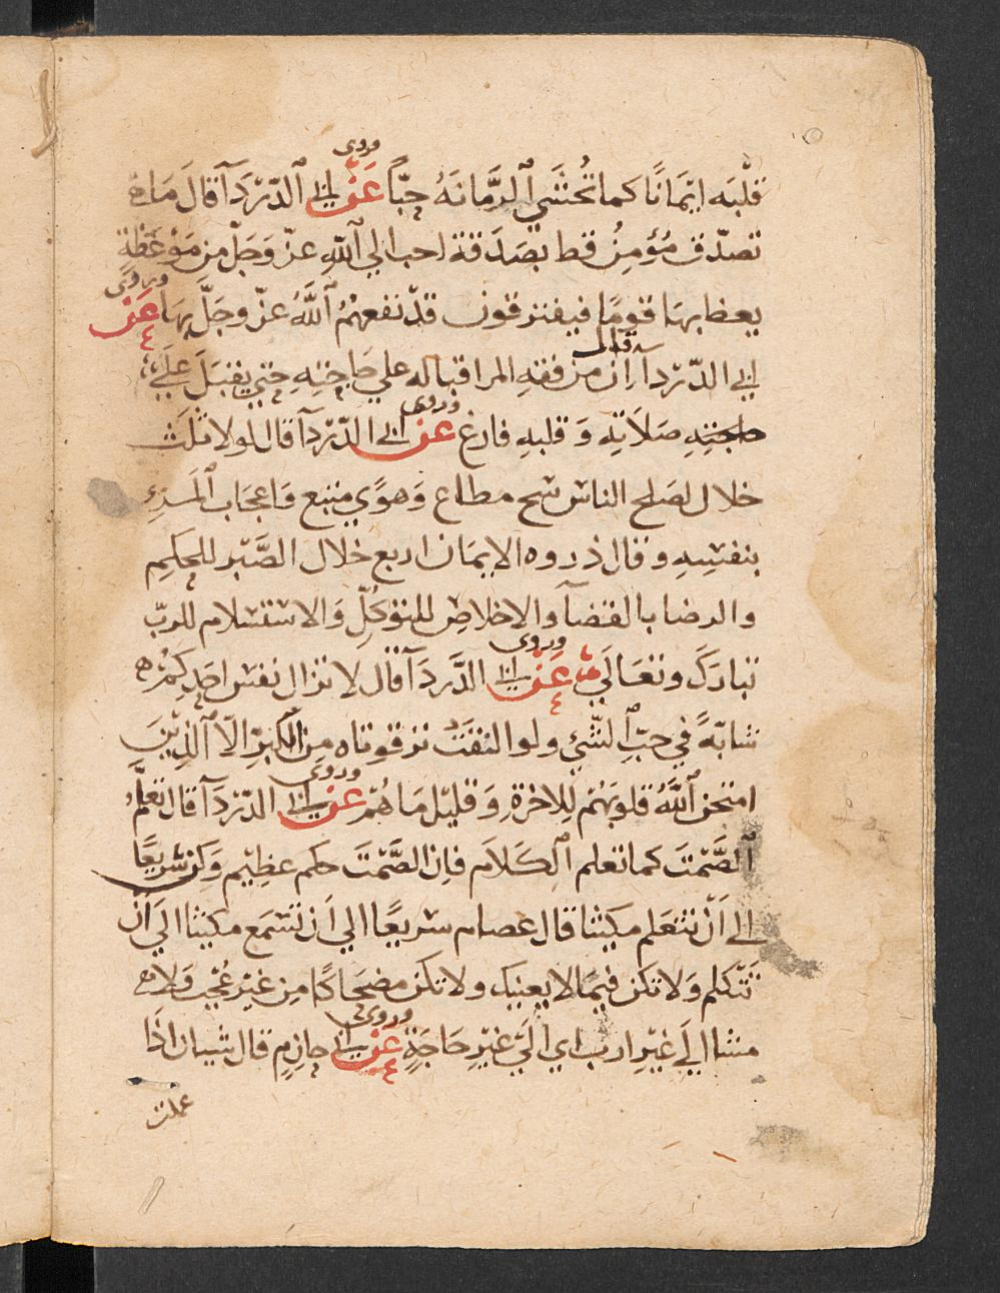 وروى
قلبه ايمانًا كما تحتشي الرمانة حبًّا عن ابي الدرداء قال ما
تصدق مؤمن قط بصدقة احب الي الله عز وجل من موعظة
يعظ بها قومًا فيفترقون قد نفعهم الله عز وجل بها وروى عن
ابي الدرداء قال ان من فقه المرا قباله علي حاجته حتي يقبل علي
حاجته صلاته و قلبه فارغ وروى عن ابي الدرداء قال لولا ثلث
خلال لصلح الناس شح مطاع وهوًي متبع واعجاب المرء
بنفسه وقال ذروه الايمان اربع خلال الصبر للحكم
والرضا بالقضآ والاخلاص للتوكل والاستسلام للرب
تبارك وتعالي وروى عن ابي الدرداء قال لا تزال نفس احدكم
شابة في حب الشئ ولو التقت ترقوتاه من الكبر الا الذين
امتحن الله قلوبهم للاخرة وقليل ما هم وروى عن ابي الدرداء قال تعلم
الصمت كما تعلم الكلام فان الصمت حكم عظيم وكن سريعًا
الي ان تتعلم مكيثا قال عصام سريعًا الي ان تسمع مكيثا الي ان
تتكلم ولا تكن فيما لا يعنيك ولا تكن مضحاكًا من غير عجب ولا
مشا الي غير ارب اي الي غير حاجة وروى عن ابي حازم قال شيان اذا
عملت